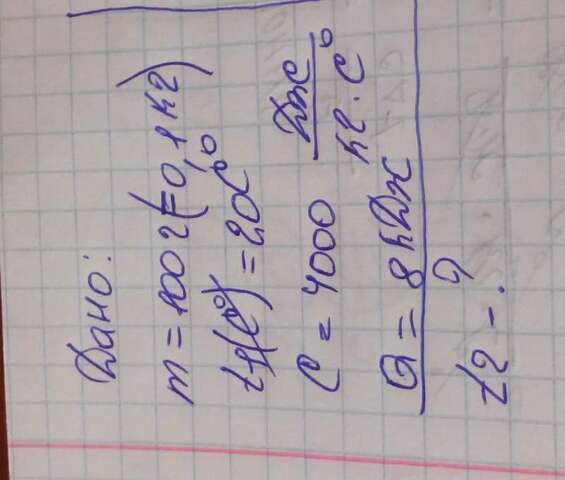 Дано:
m = 100 г (= 0,1 кг)
t1 = 20 C°
C = 4000 Дж / кг · C°
Q = 8 кДж
t2 - ?